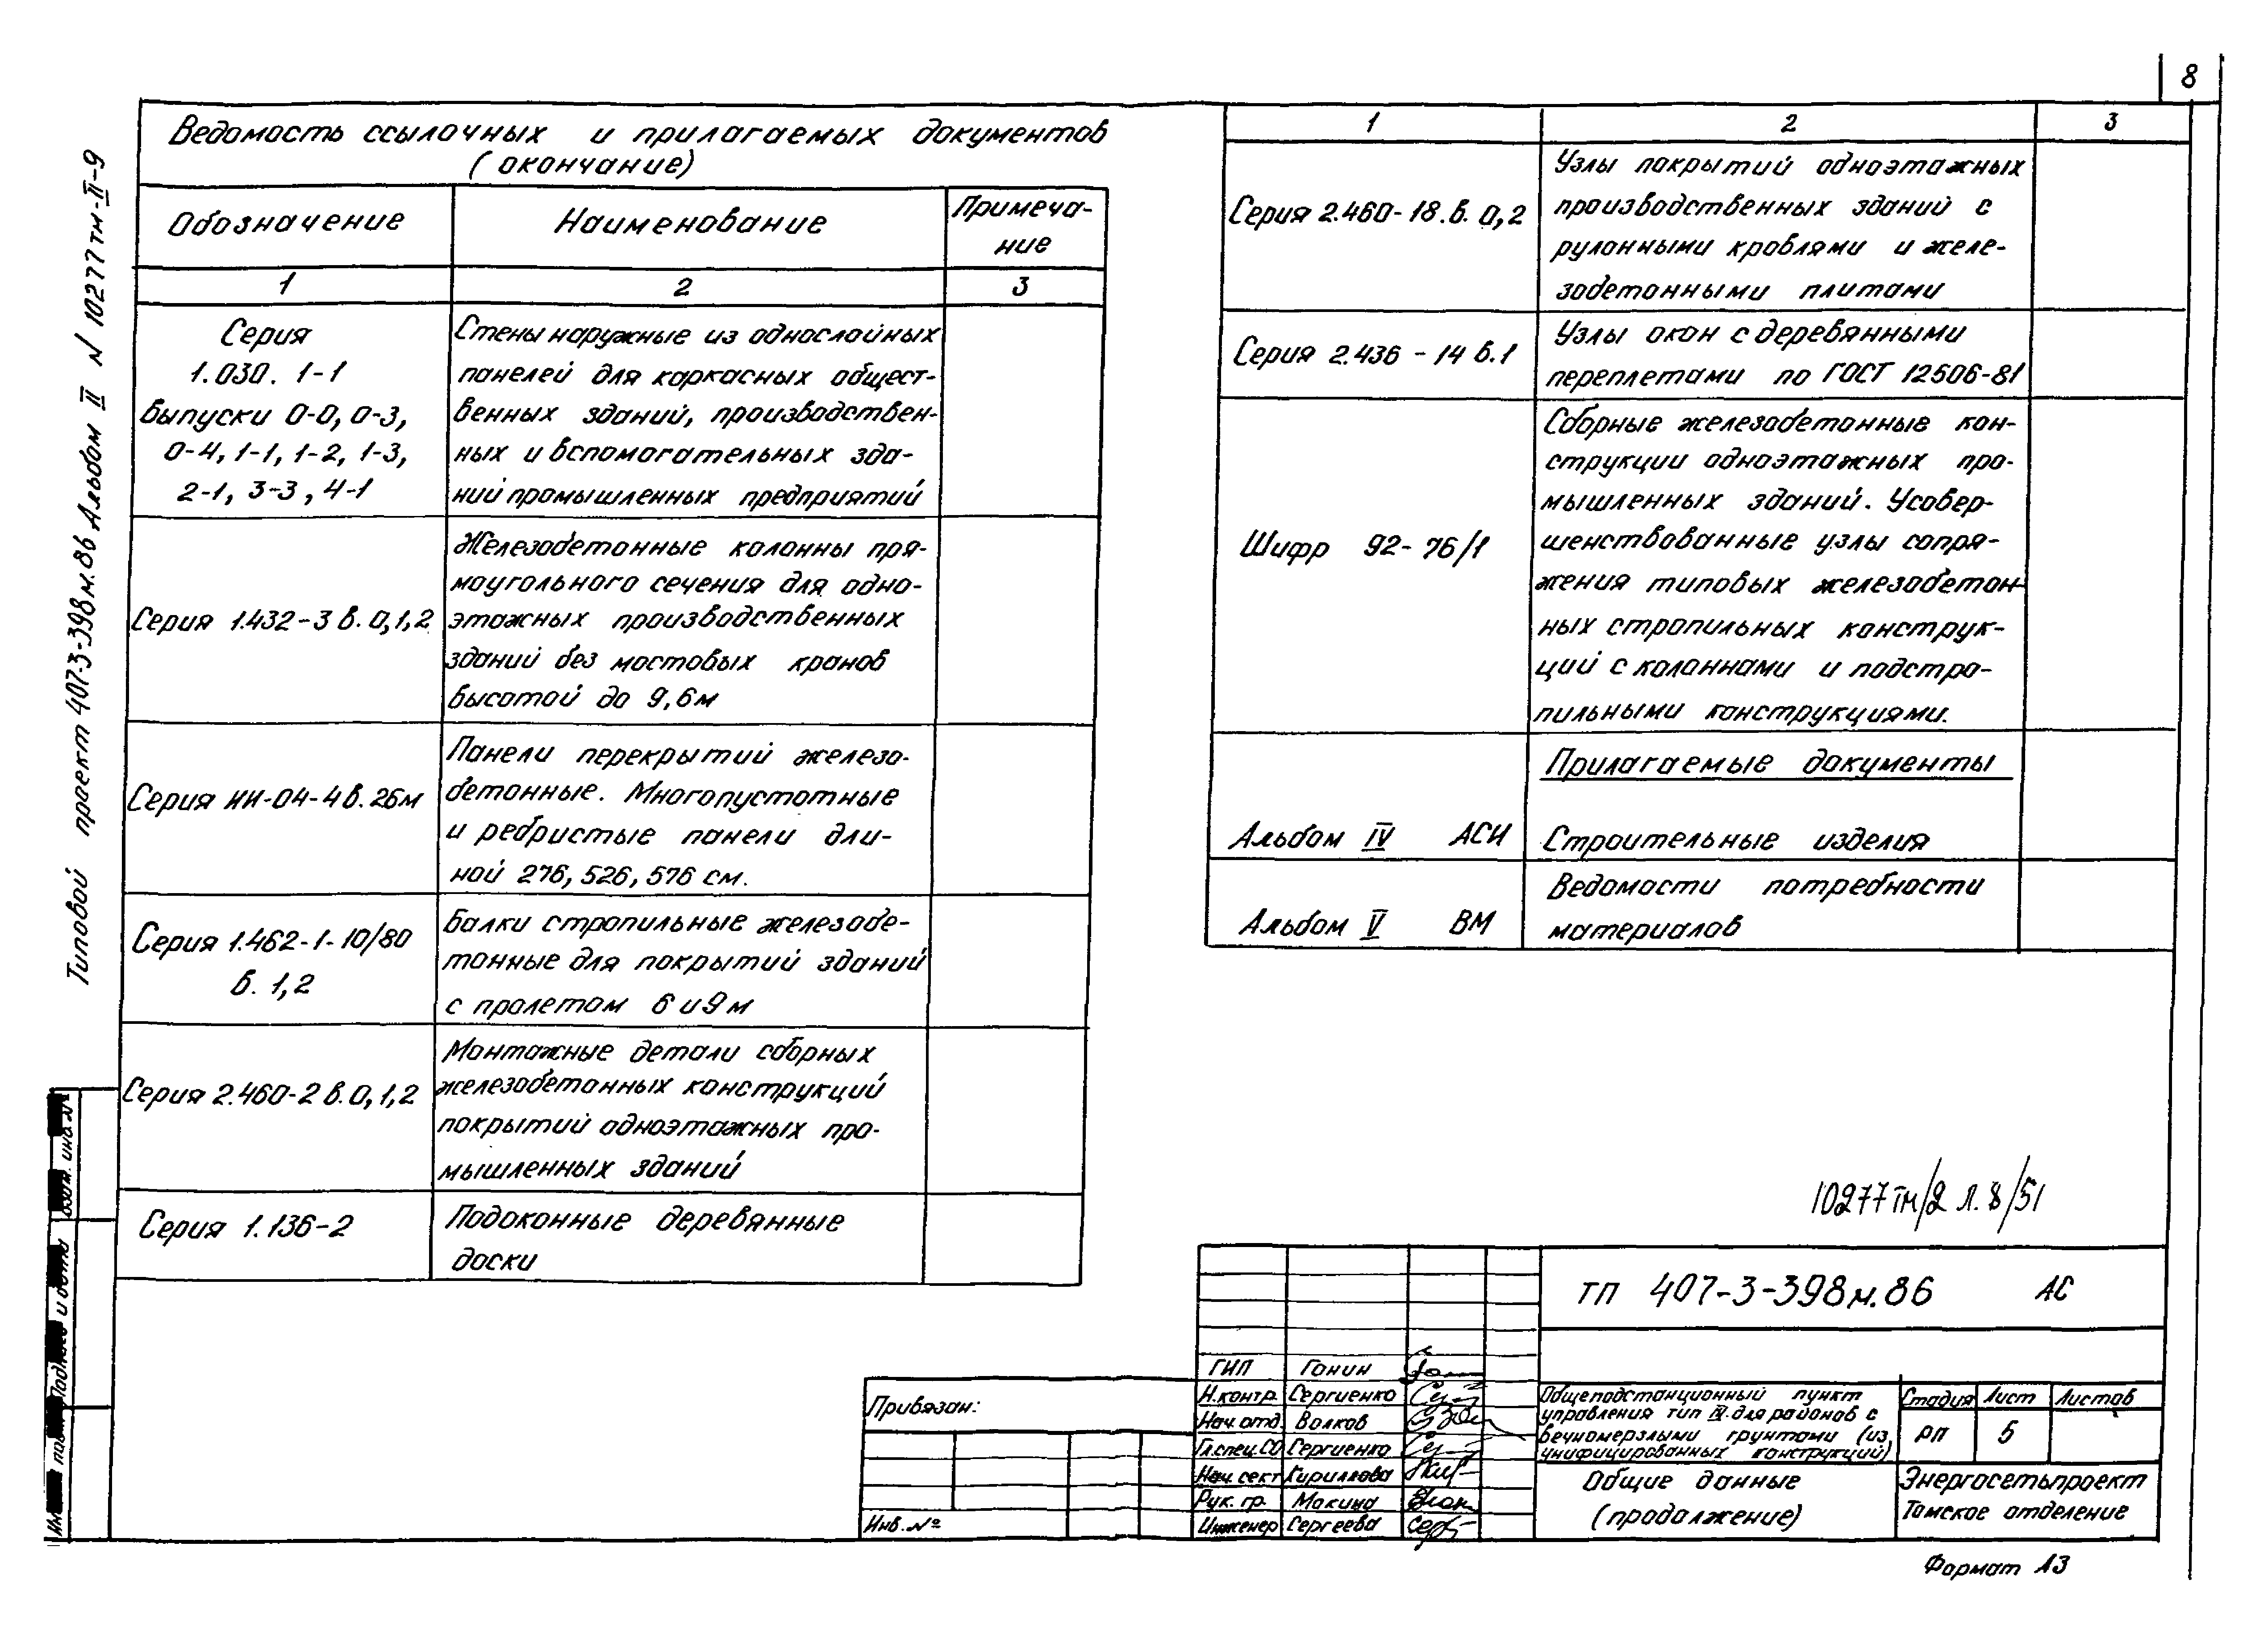 8
Типовой проект 407-3-398м.86 Альбом II N 10277тм-II-9
Ведомость ссылочных и прилагаемых документов
(окончание)
Обозначение
Наименование
Примеча-
ние
1
2
3
Серия
1.030. 1-1
Выпуски 0-0, 0-3,
0-4, 1-1, 1-2, 1-3,
2-1, 3-3, 4-1
Стены наружные из однослойных
панелей для каркасных общест-
венных зданий, производствен-
ных и вспомогательных зда-
ний промышленных предприятий
Серия 1.432-3 в. 0,1,2
Железобетонные колонны пря-
моугольного сечения для одно-
этажных производственных
зданий без мостовых кранов
высотой до 9,6м
Серия ИИ-04-4 в. 26м
Панели перекрытий железо-
бетонные. Многопустотные
и ребристые панели дли-
ной 276, 526, 576 см.
Серия 1.462-1-10/80
в. 1,2
Балки стропильные железобе-
тонные для покрытий зданий
с пролетом 6 и 9 м
Серия 2.460-2 в. 0,1,2
Монтажные детали сборных
железобетонных конструкций
покрытий одноэтажных про-
мышленных зданий
Серия 1.136-2
Подоконные деревянные
доски
1
2
3
Серия 2.460-18.в. 0,2
Узлы покрытий одноэтажных
производственных зданий с
рулонными кровлями и желе-
зобетонными плитами
Серия 2.436-14 в.1
Узлы окон с деревянными
переплетами по ГОСТ 12506-81
Шифр 92-76/1
Сборные железобетонные кон-
струкции одноэтажных про-
мышленных зданий. Усовер-
шенствованные узлы сопря-
жения типовых железобетон-
ных стропильных конструк-
ций с колоннами и подстро-
пильными конструкциями.
Прилагаемые документы
Альбом IV АСИ
Строительные изделия
Альбом V ВМ
Ведомости потребности
материалов
10277тм/2 л. 8/51
ТП 407-3-398м.86 АС
ГИП Гонин
Н.контр. Сергиенко
Нач. отд. Волков
Гл.спец.СО Сергиенко
Нач. сект Кириллова
Рук. гр. Макина
Инженер Сергеева
Общеподстанционный пункт
управления тип IV для районов с
вечномерзлыми грунтами (из
унифицированных конструкций)
Стадия Лист Листов
РП 5
Общие данные
(продолжение)
Энергосетьпроект
Томское отделение
Привязан:
Инв. №
Взам. инв. №
Подпись и дата
подл.
Формат А3